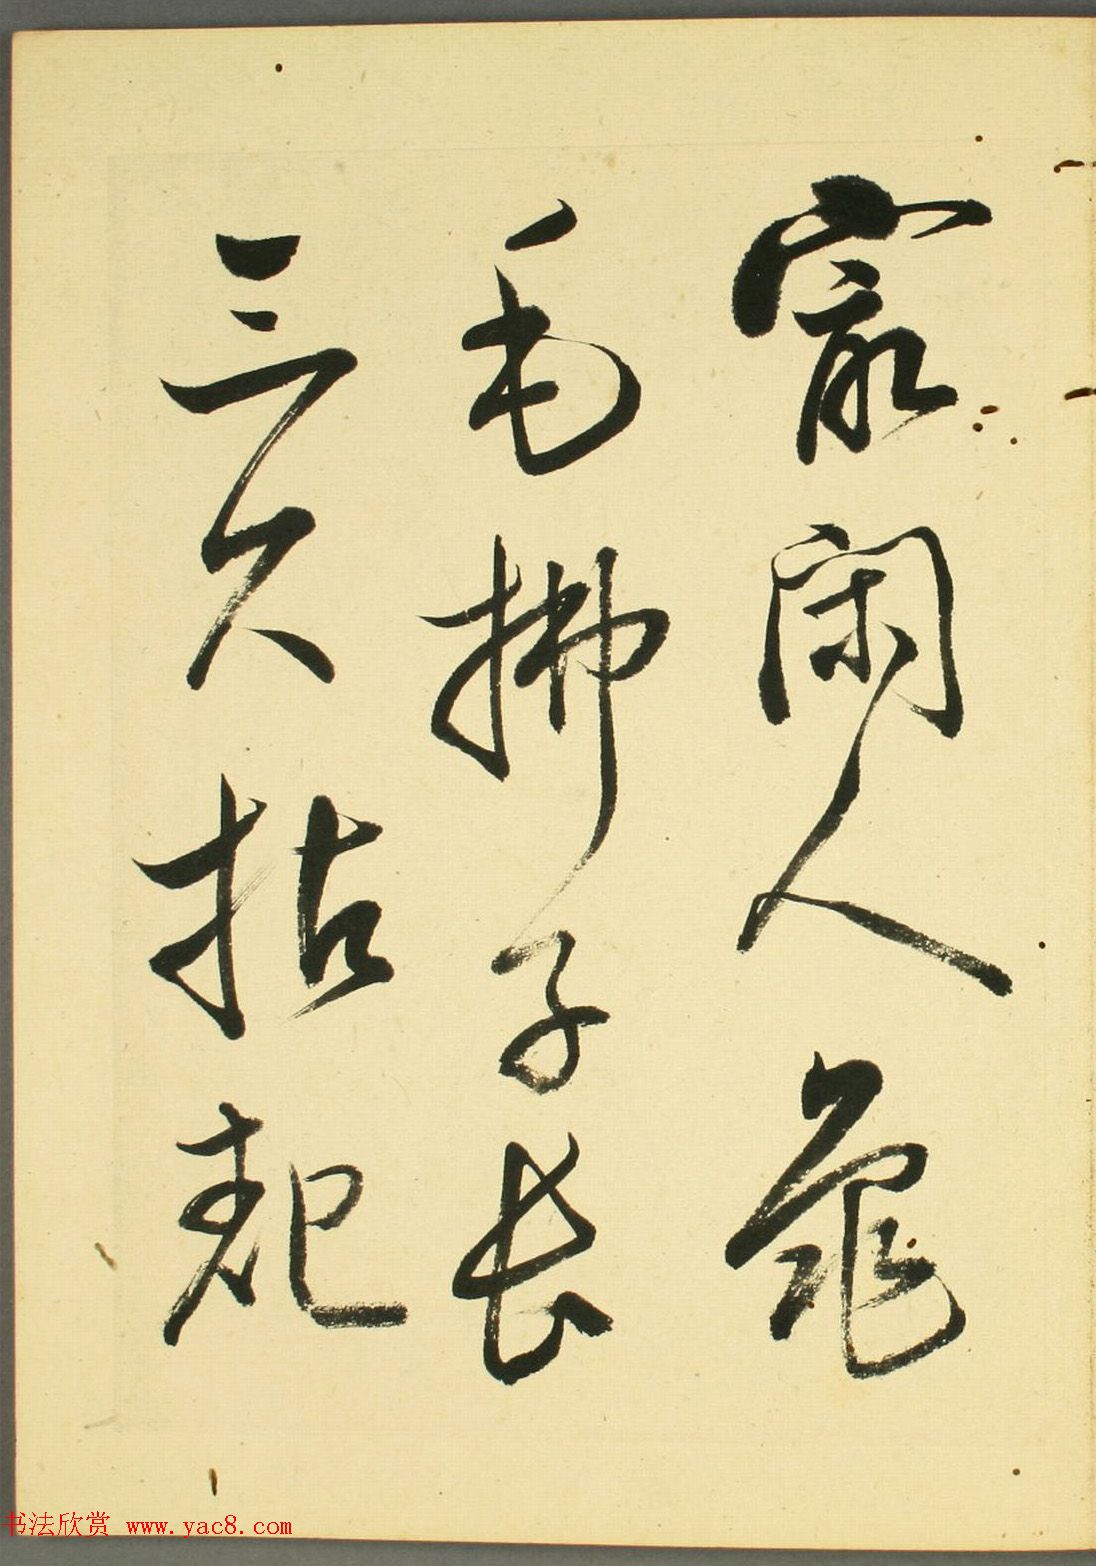 最闲人龟
毛拂子长
三尺拈起
书法欣赏 www.yac8.com